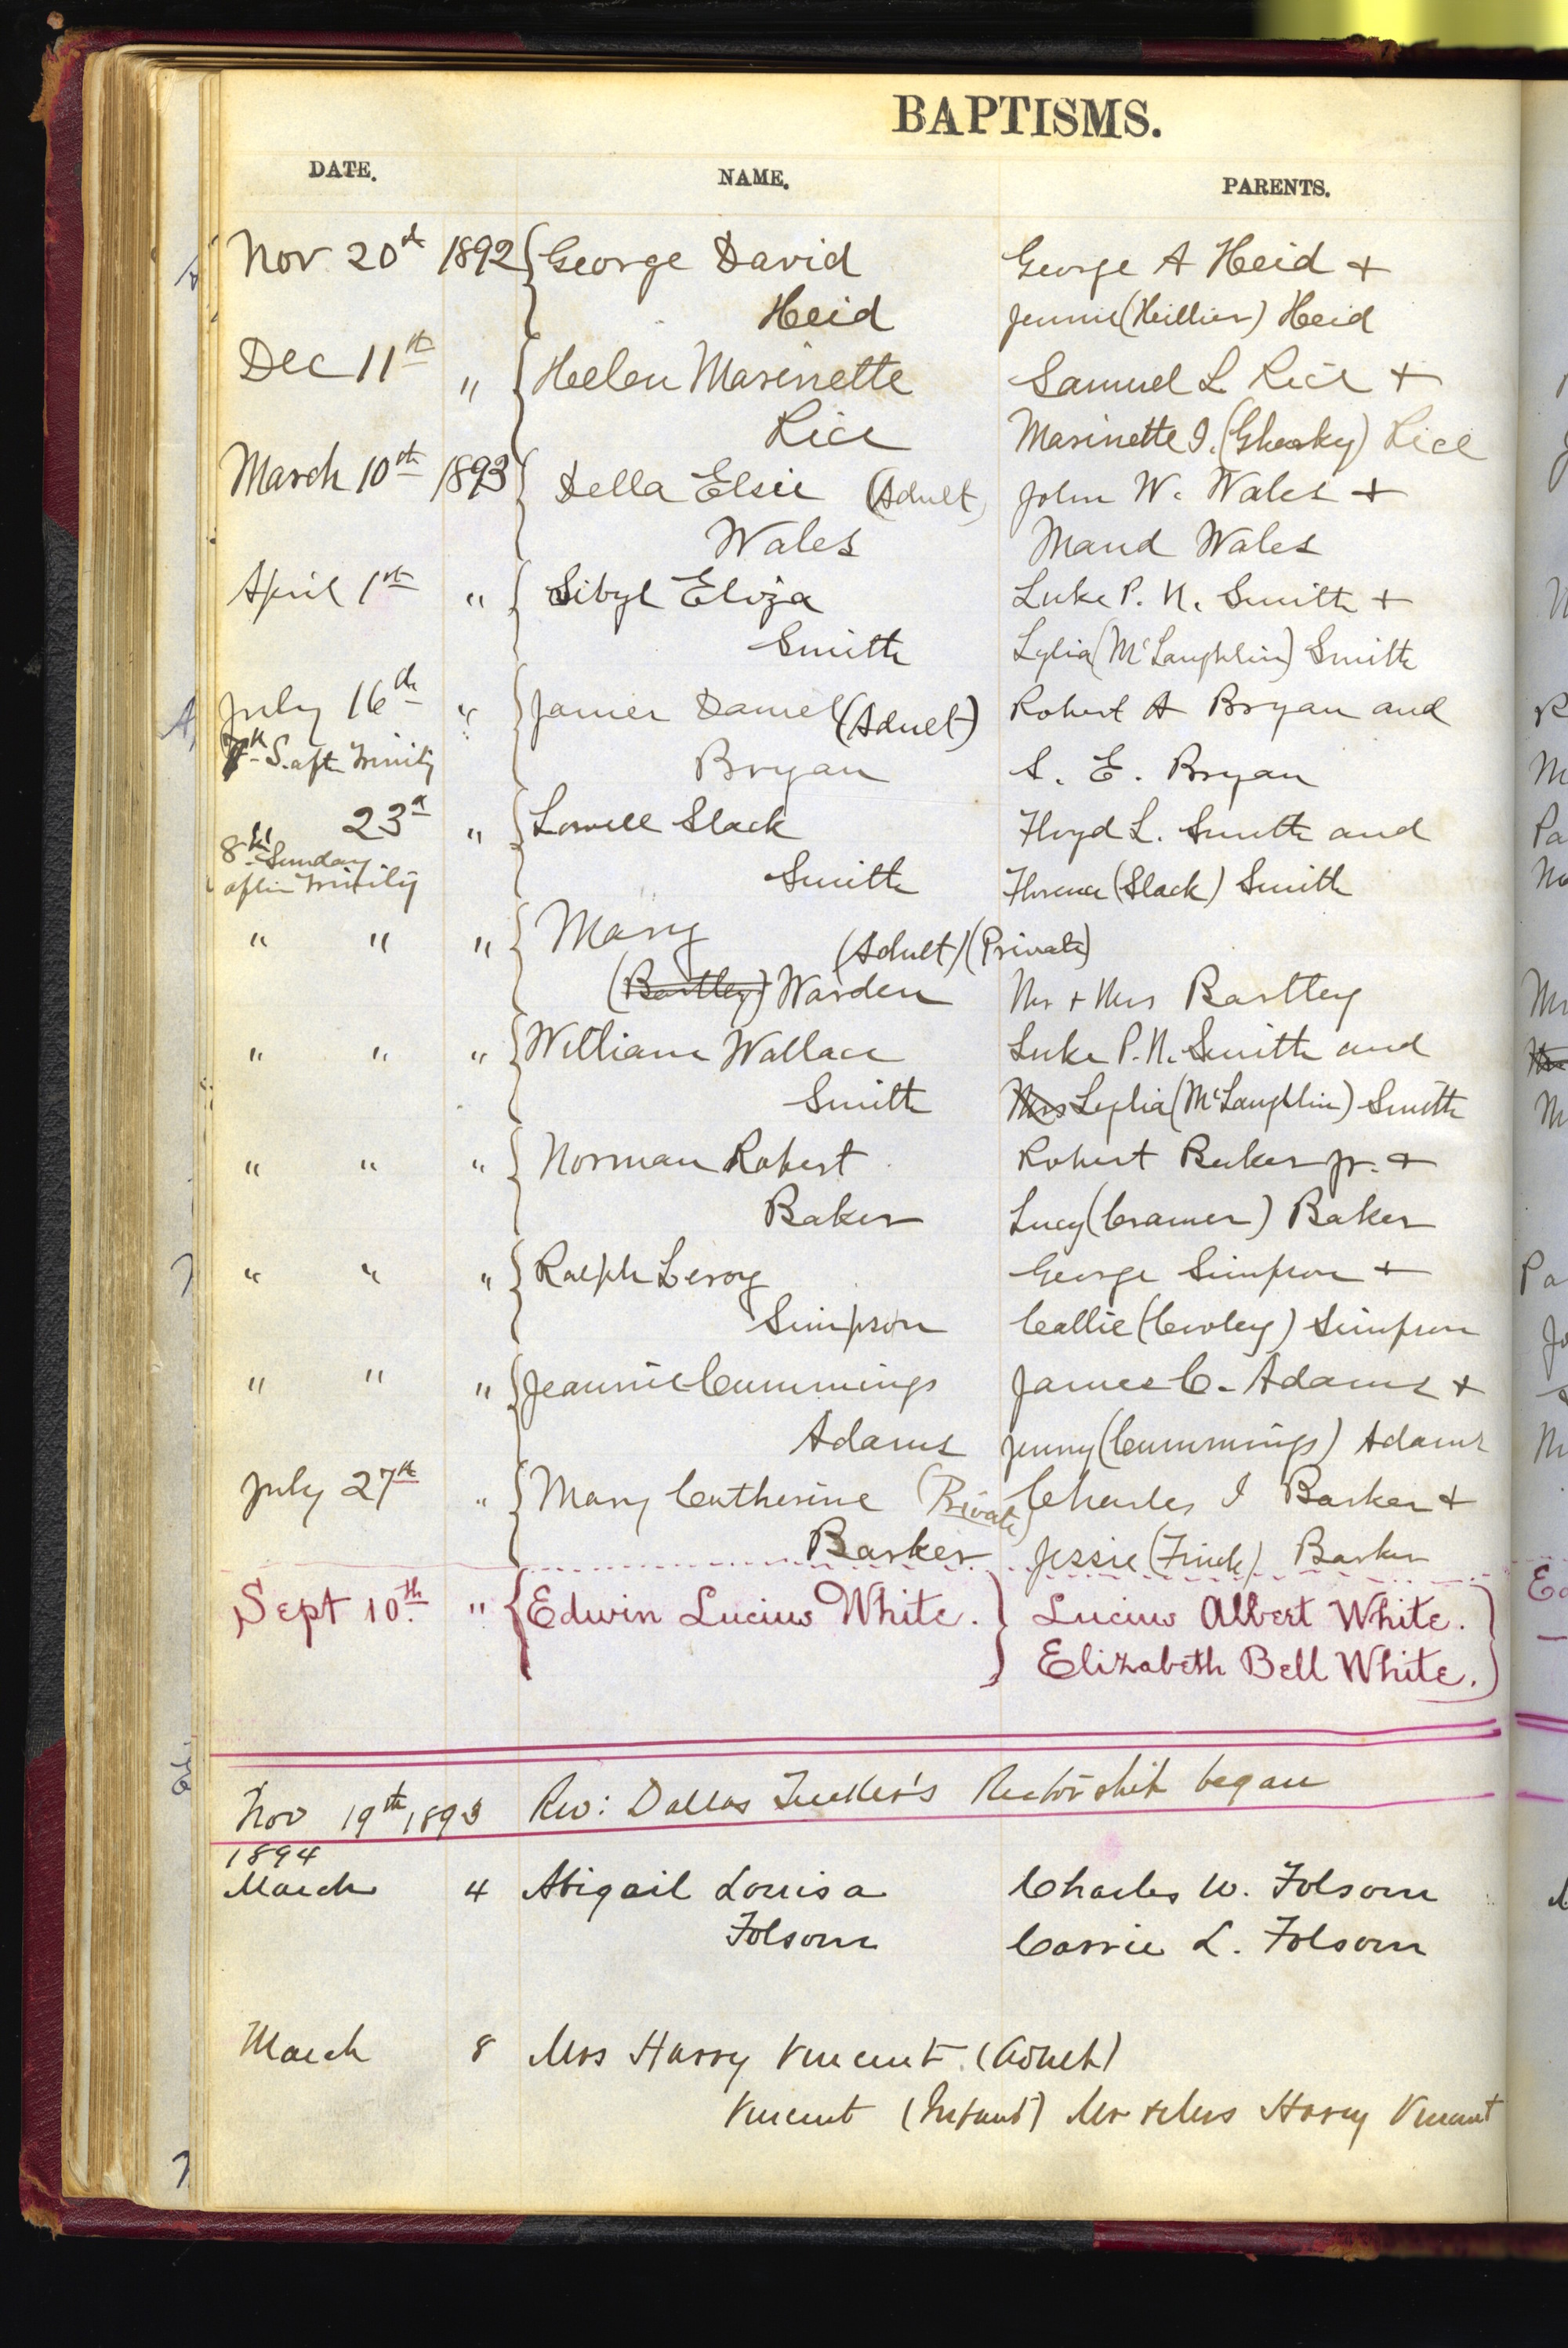 BAPTISMS.
DATE. NAME. PARENTS.
Nov. 20th 1892 George David George A Heid +
Heid Jennie (Hillier) Heid
Dec 11th " Helen Marinette Samuel L Rice +
Rice Marinette I. (Ghosky) Rice
March 10th 1893 Della Elsie (Adult) John W. Wales +
Wales Maud Wales
April 1st " Sibyl Eliza Luke P. N. Smith +
Smith Lylia (McLaughlin) Smith
July 16th " James Daniel (Adult) Robert A Bryan and
7th S. aft Trinity Bryan S. E. Bryan
23d " Lowell Slack Floyd L. Smith and
8th Sunday
after Trinity Smith Florence (Slack) Smith
" " " Mary (Adult) (Private)
(Bartley) Warden Mr + Mrs Bartley
" " " William Wallace Luke P. N. Smith and
Smith Mrs Lylia (McLaughlin) Smith
" " " Norman Robert Robert Baker Jr. +
Baker Lucy (Cramer) Baker
" " " Ralph Leroy George Simpson +
Simpson Callie (Cooley) Simpson
" " " Jeannie Cummings James C. Adams +
Adams Jenny (Cummings) Adams
July 27th " Mary Catherine (Private) Charles I Barker +
Barker Jessie (Finch) Barker
Sept 10th " Edwin Lucius White. Lucius Albert White.
Elizabeth Bell White.
Nov 19th, 1893 Rev: Dallas Tucker's Rectorship began
1894
March 4 Abigail Louisa Charles W. Folsom
Folsom Carrie L. Folsom
March 8 Mrs Harry Vincent (Adult)
Vincent (Infant) Mr & Mrs Harry Vincent